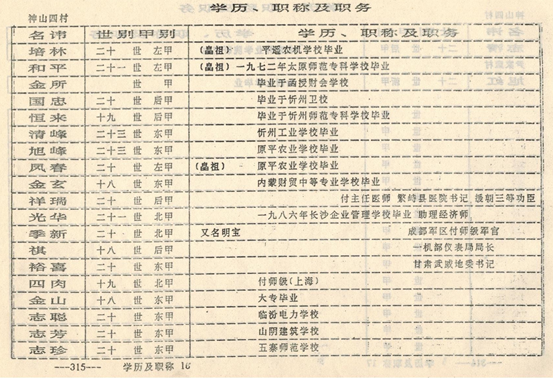 学历、职称及职务
神山四村
名讳 世别甲别 学历、职称及职务
培林 二十 世 左甲 (晶祖) 平遥农机学校毕业
和平 二十一 世 左甲 (晶祖) 一九七二年太原师范专科学校毕业
金所 世 甲 毕业于函授财会学校
国忠 二十 世 后甲 毕业于忻州卫校
恒来 十九 世 后甲 毕业于忻州师范专科学校毕业
清峰 二十三 世 东甲 忻州工业学校毕业
旭峰 二十三 世 东甲 原平农业学校毕业
风春 二十 世 左甲 (晶祖) 原平农业学校毕业
金玄 十八 世 东甲 内蒙财贸中等专业学校毕业
祥瑞 二十 世 后甲 付主任医师 繁峙县医院书记 援朝三等功臣
光华 二十一 世 北甲 一九八六年长沙企业管理学校毕业 助理经济师
季新 二十 世 北甲 又名明宝 成都军区付师级军官
祺 十八 世 后甲 一机部仪表局局长
裕喜 二十 世 东甲 甘肃武威地委书记
四肉 十九 世 北甲 付师级(上海)
金山 十八 世 东甲 大专毕业
志聪 二十 世 东甲 临汾电力学校
志芳 二十 世 东甲 山阴建筑学校
志珍 二十 世 东甲 五寨师范学校
---315--- 学历及职称 16